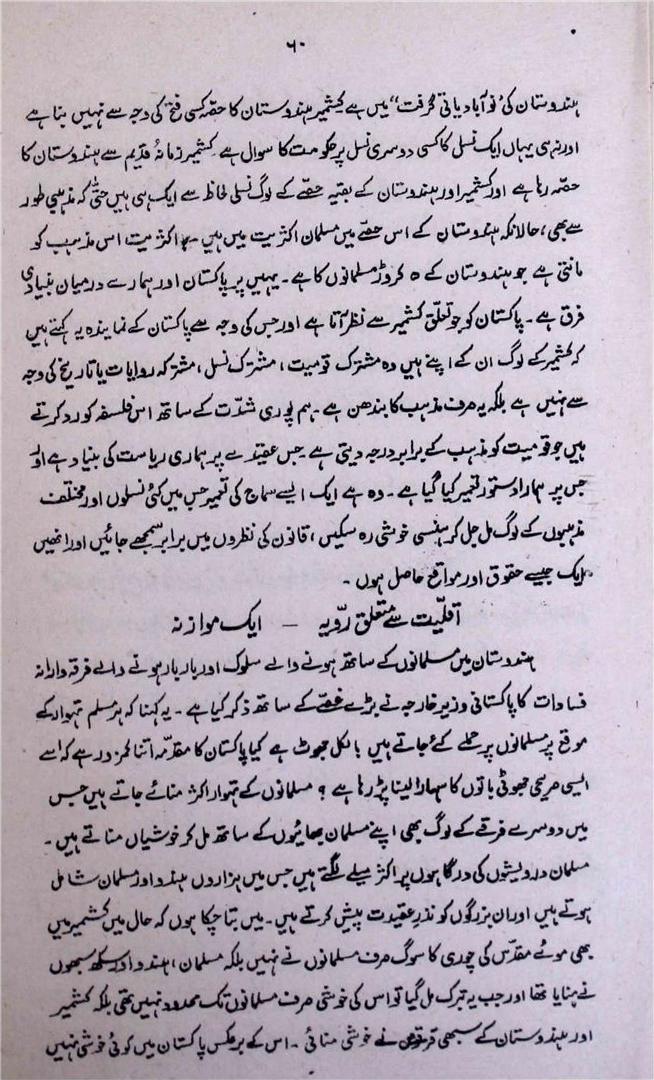 ۶۰
ہندوستان کی ’’نوآبادیاتی گرفت‘‘ میں ہے کشمیر ہندوستان کا حصہ کسی فتح کی وجہ سے نہیں بنا ہے
اور نہ ہی یہاں ایک نسل کا کسی دوسری نسل پر حکومت کا سوال ہے۔ کشمیر زمانۂ قدیم سے ہندوستان کا
حصہ رہا ہے اور کشمیر اور ہندوستان کے بقیہ حصے کے لوگ نسلی لحاظ سے ایک ہی ہیں حتیٰ کہ مذہبی طور
سے بھی، حالانکہ ہندوستان کے اس حصے میں مسلمان اکثریت میں ہیں۔ یہ اکثریت اس مذہب کو
مانتی ہے جو ہندوستان کے ۵ کروڑ مسلمانوں کا ہے۔ یہیں پر پاکستان اور ہمارے درمیان بنیادی
فرق ہے۔ پاکستان کو جو تعلق کشمیر سے نظر آتا ہے اور جس کی وجہ سے پاکستان کے نمایندہ یہ کہتے ہیں
کہ کشمیر کے لوگ ان کے اپنے ہیں وہ مشترک قومیت، مشترک نسل، مشترکہ روایات یا تاریخ کی وجہ
سے نہیں ہے بلکہ یہ صرف مذہب کا بندھن ہے۔ ہم پوری شدّت کے ساتھ اس فلسفہ کو رد کرتے
ہیں جو قومیت کو مذہب کے برابر درجہ دیتی ہے۔ جس عقیدے پر ہماری ریاست کی بنیاد ہے اور
جس پر ہمارا دستور تعمیر کیا گیا ہے۔ وہ ہے ایک ایسے سماج کی تعمیر جس میں کئی نسلوں اور مختلف
مذہبوں کے لوگ مل جل کر ہنسی خوشی رہ سکیں، قانون کی نظروں میں برابر سمجھے جائیں اور انھیں
ایک جیسے حقوق اور مواقع حاصل ہوں۔
اقلیّت سے متعلق روّیہ – ایک موازنہ
ہندوستان میں مسلمانوں کے ساتھ ہونے والے سلوک اور بار بار ہونے والے فرقہ وارانہ
فسادات کا پاکستانی وزیر خارجہ نے بڑے غصے کے ساتھ ذکر کیا ہے۔ یہ کہنا کہ ہر مسلم تہوار کے
موقع پر مسلمانوں پر حملے کئے جاتے ہیں بالکل جھوٹ ہے کیا پاکستان کا مقدّمہ اتنا کمزور ہے کہ اسے
ایسی صریحی جھوٹی باتوں کا سہارا لینا پڑ رہا ہے؟ مسلمانوں کے تہوار اکثر منائے جاتے ہیں جس
میں دوسرے فرقے کے لوگ بھی اپنے مسلمان بھائیوں کے ساتھ مل کر خوشیاں مناتے ہیں۔
مسلمان درویشوں کی درگاہوں پر اکثر میلے لگتے ہیں جس میں ہزاروں ہندو اور مسلمان شامل
ہوتے ہیں اور ان بزرگوں کو نذرِ عقیدت پیش کرتے ہیں۔ میں بتا چکا ہوں کہ حال میں کشمیر میں
بھی موئے مقدّس کی چوری کا سوگ صرف مسلمانوں نے نہیں بلکہ مسلمان، ہندو اور سکھ سبھوں
نے منایا تھا اور جب یہ تبرک مل گیا تو اس کی خوشی صرف مسلمانوں تک محدود نہیں تھی بلکہ کشمیر
اور ہندوستان کے سبھی فرقوں نے خوشی منائی۔ اس کے برعکس پاکستان میں کوئی خوشی نہیں